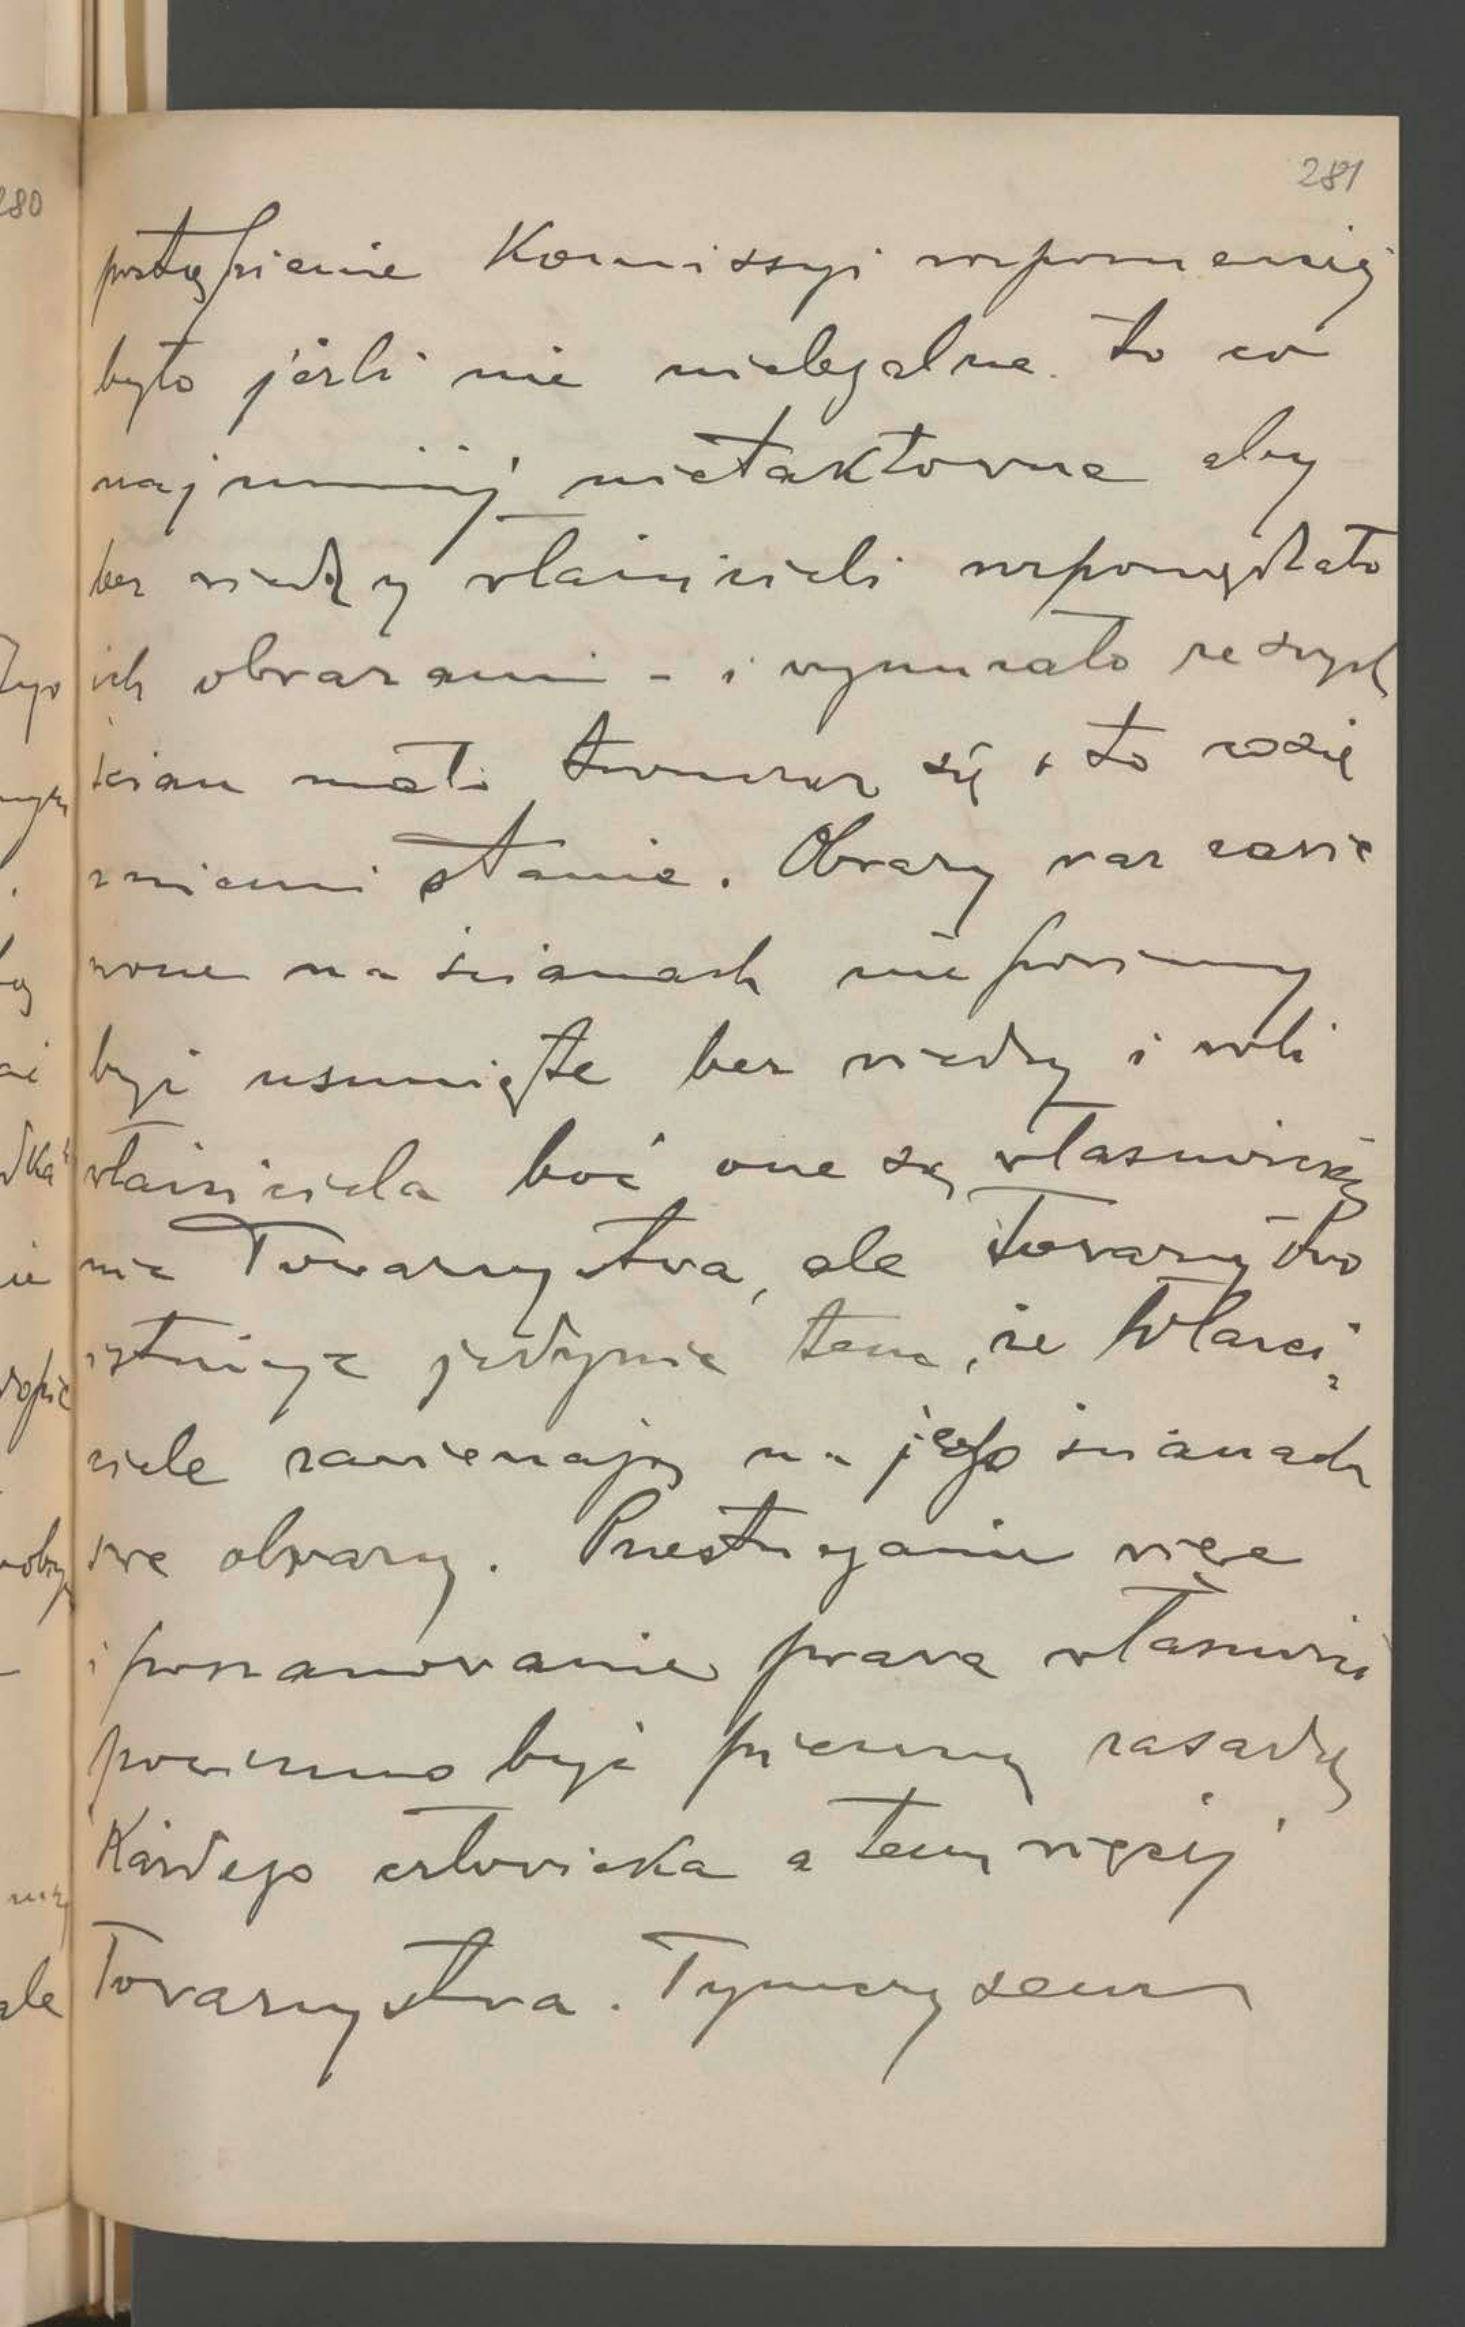 281
postąpienie Komissyi
było jeśli nie nielegalne to co
najmniej nietaktowne aby
bez wiedzy właścicieli rozporządzało
ich obrazami - i wyrzucało ze swych
ścian się i to
stanie. Obrazy raz zawie
szone na ścianach nie powinny
być usunięte bez wiedzy i woli
właściciela boć one są własnością
nie Towarzystwa, ale Towarzystwo
istnieje jedynie tem, że Właści
ciele zawieszają na jego ścianach
swe obrazy. Przestrzeganie więc
i poszanowanie prawa własności
powinno być pierwszą zasadą
Każdego człowieka a tem więcej
Towarzystwa. Tymczasem
280